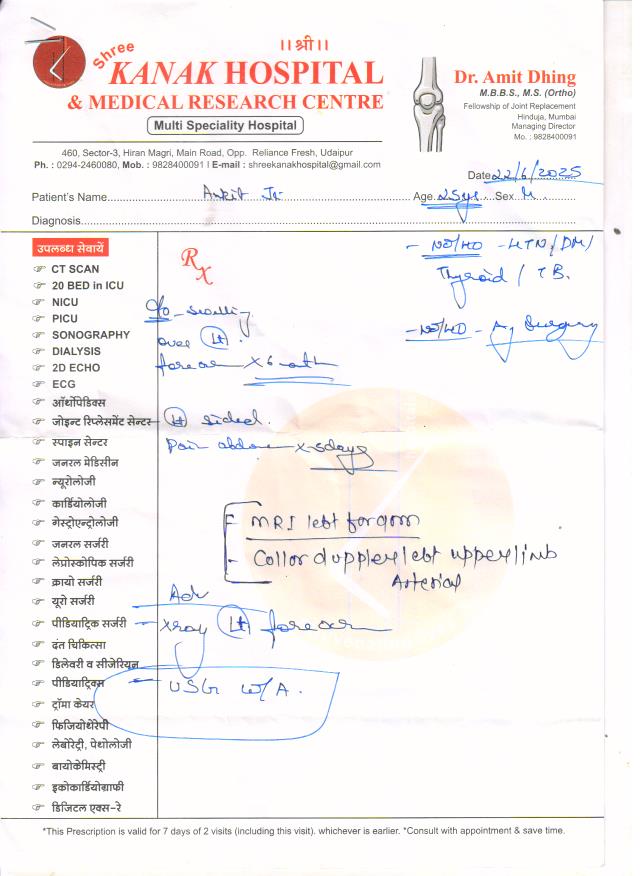 ॥श्री॥
Shree
KANAK HOSPITAL
& MEDICAL RESEARCH CENTRE
Multi Speciality Hospital
460, Sector-3, Hiran Magri, Main Road, Opp. Reliance Fresh, Udaipur
Ph. : 0294-2460080, Mob. : 9828400091 | E-mail : shreekanakhospital@gmail.com
Dr. Amit Dhing
M.B.B.S., M.S. (Ortho)
Fellowship of Joint Replacement
Hinduja, Mumbai
Managing Director
Mo. : 9828400091
Date 22/6/2025
Patient's Name Ankit Age Sex M
Diagnosis
उपलब्ध सेवायें
CT SCAN
20 BED in ICU
NICU
PICU
SONOGRAPHY
DIALYSIS
2D ECHO
ECG
ऑर्थोपेडिक्स
जोइन्ट रिप्लेसमेंट सेन्टर
स्पाइन सेन्टर
जनरल मेडिसीन
न्यूरोलोजी
कार्डियोलोजी
गेस्ट्रोएन्ट्रोलोजी
जनरल सर्जरी
लेप्रोस्कोपिक सर्जरी
क्रायो सर्जरी
यूरो सर्जरी
पीडियाट्रिक सर्जरी
दंत चिकित्सा
डिलेवरी व सीजेरियन
पीडियाट्रिक्स
ट्रॉमा केयर
फिजियोथेरेपी
लेबोरेट्री, पेथोलोजी
बायोकेमिस्ट्री
इकोकार्डियोग्राफी
डिजिटल एक्स-रे
Rx
- NO/HO - HTN/DM/
Thyroid / TB.
- NO/HO - Any Surgery
c/o - swelling
over Lt
forearm x 6 month
Lt sided
Pain abdomen x 5days
- MRI left forearm
- Collor duppler left upper limb
Arterial
Adv
- Xray Lt forearm
- USG W/A.
*This Prescription is valid for 7 days of 2 visits (including this visit). whichever is earlier. *Consult with appointment & save time.